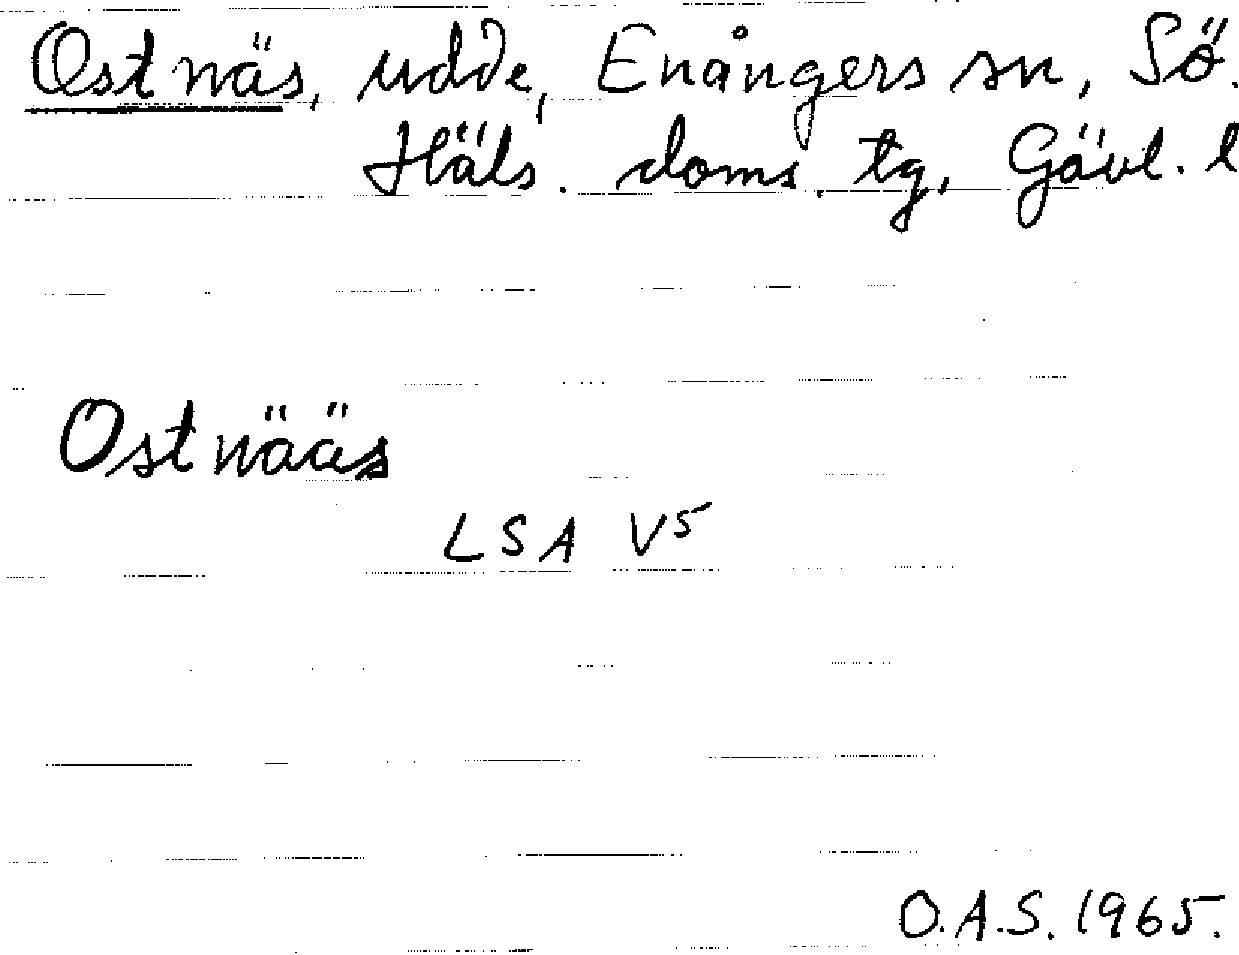 Ostnäs, udde, Enångers sn, Sö.
Häls. doms. tg, Gävl. l
Ostnääs
LSA V5
O.A.S. 1965.